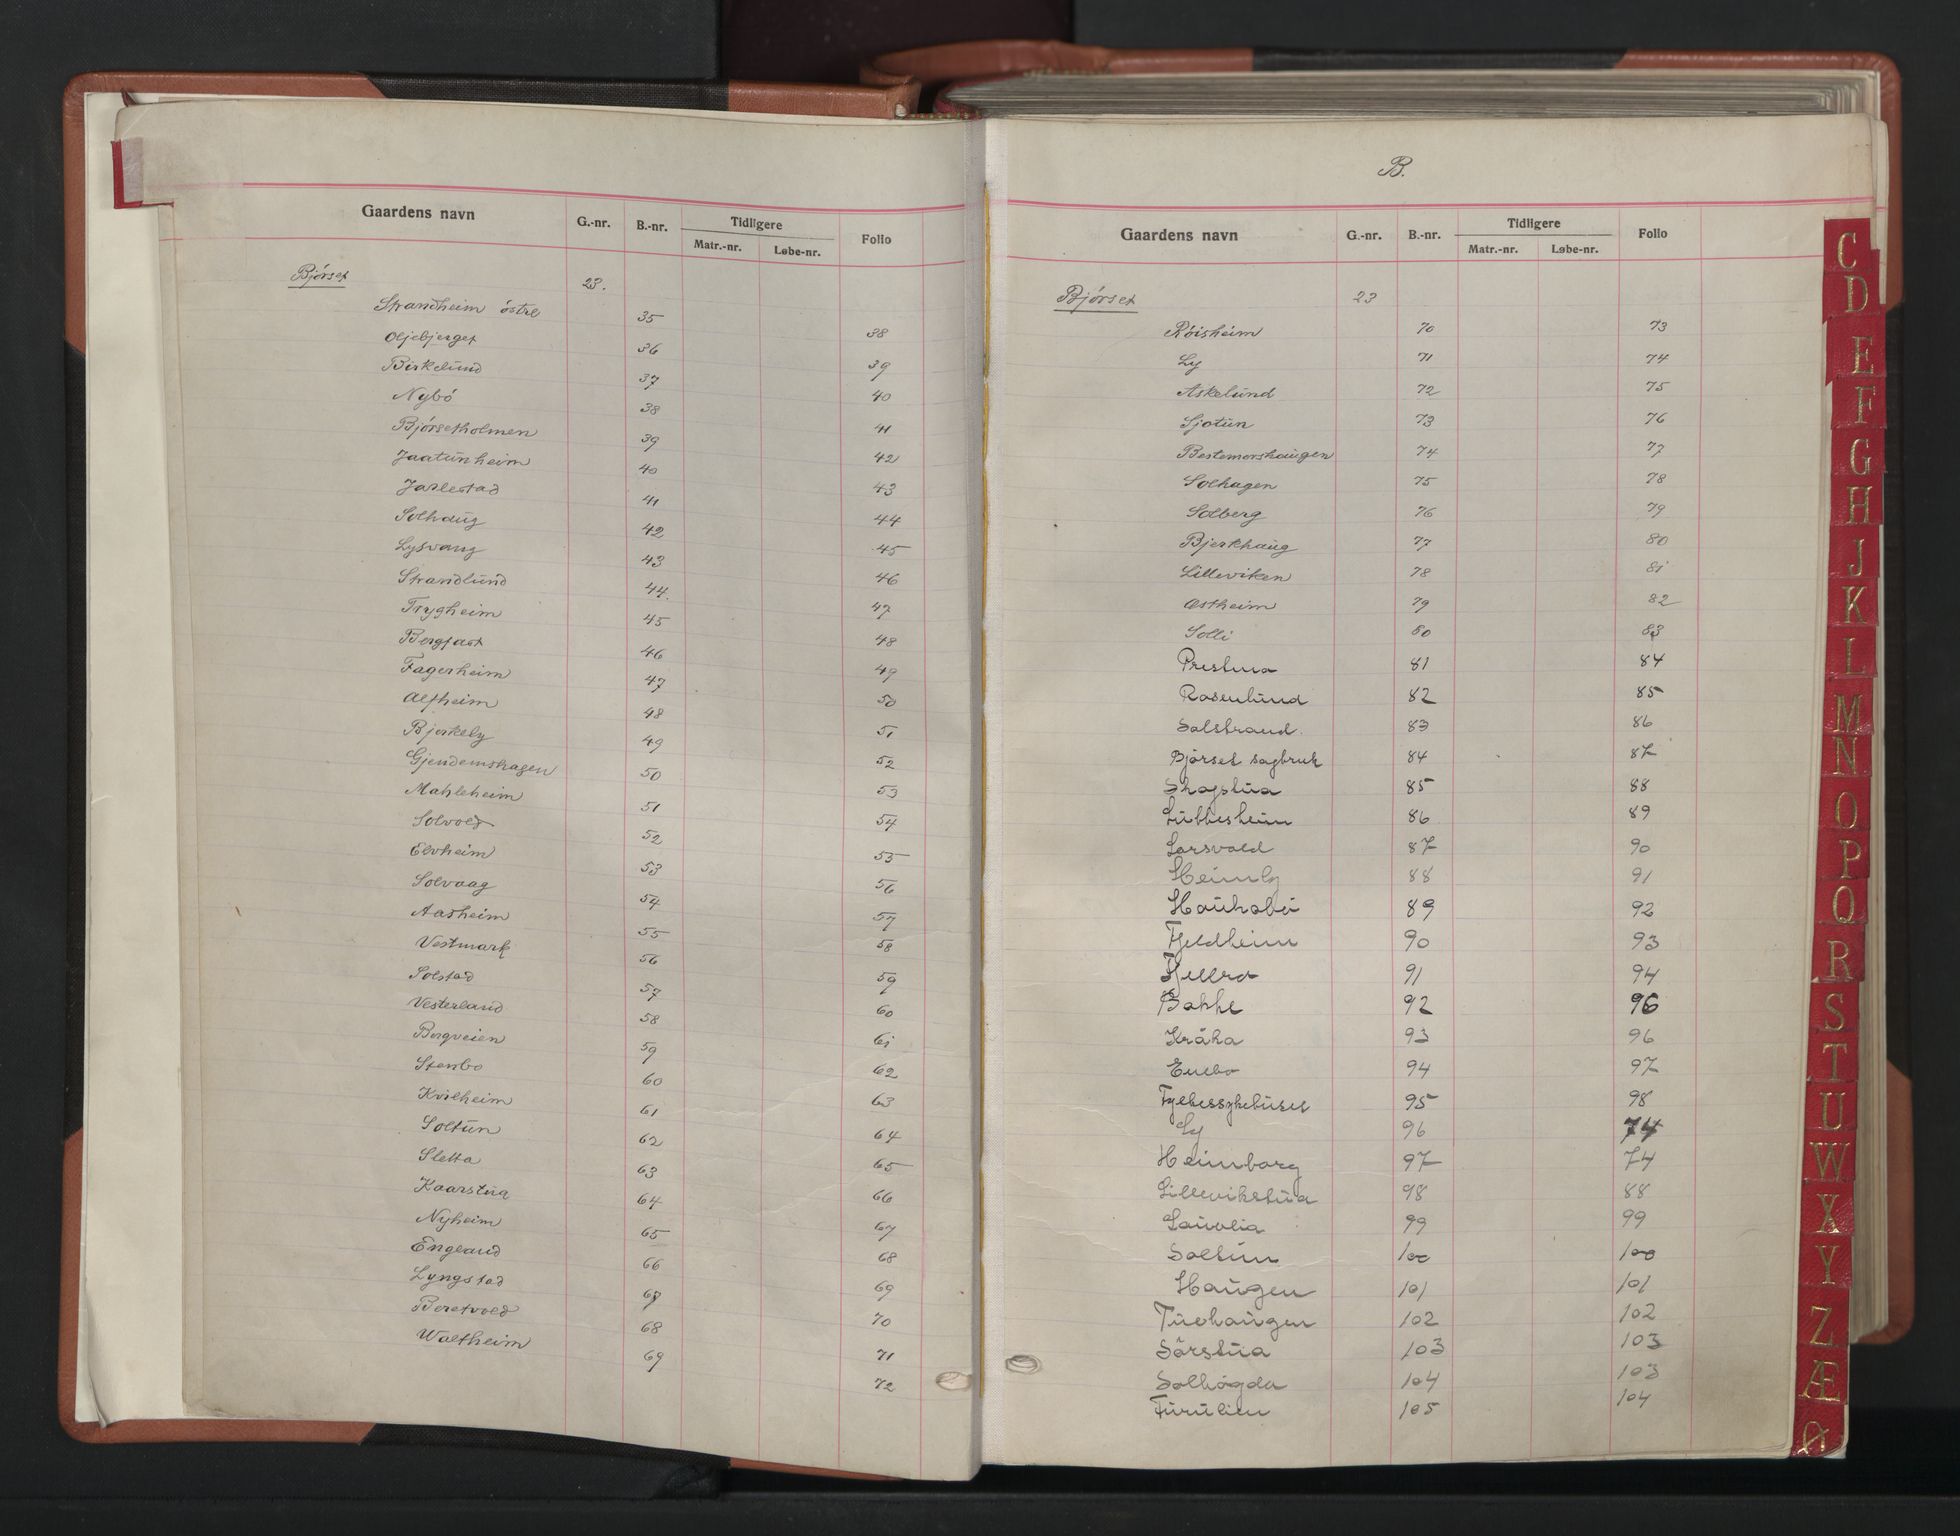 Gaardens navn G.-nr. B.-nr. Tidligere Folio
Matr.-nr. Løbe-nr.
Bjórset 23.
Strandheim óstre 35 38
Oljebjerget 36 39
Birkelund 37 40
Nybó 38 41
Bjórsetholmen 39 42
Jaatunheim 40 43
Jarlestad 41 44
Solhaug 42 45
Lysvang 43 46
Strandlund 44. 47
Trygheim 45 48
Bergfast 46 49
Fagerheim 47 50
Alfheim 48 51
Bjerkely 49 52
Gjendemshagen 50 53
Mahleheim 51 54
Solvold 52 55
Elvheim 53 56
Solvaag 54 57
Aasheim 55 58
Vestmark 56 59
Solstad 57 60
Vesterland 58 61
Bergveien 59 62
Stenbo 60 63
Kvilheim 61 64
Soltun 62 65
Sletta 63 66
Kaarstua 64 67
Nyheim 65 68
England 66 69
Lyngstad 67 70
Beretvold 68 71
Waltheim 69 72
B.
Gaardens navn G.-nr. B.-nr. Tidligere Folio
Matr.-nr. Løbe-nr.
Bjórset 23
Róisheim 70 73
Ly 71 74
Askelund 72 75
Sjotun 73 76
Bestemorshaugen 74 77
Solhagen 75 78
Solberg 76 79
Bjerkhaug 77 80
Lilleviken 78 81
Astheim 79 82
Solli 80 83
Prestua 81 84
Rosenlund 82 85
Solstrand. 83 86
Bjørset sagbruk 84 87
Skogstua 85 88
Lubbesheim 86 89
Larsvold 87 90
Heimly 88 91
Haukabó 89 92
Fjeldheim 90 93
Fjellro 91 94
Bakke 92 96
Kråka 93 96
Enebo 94 97
Fylkessykehuset 95 98
Ly 96 74
Heimborg 97 74
Lillevikstua 98 88
Lauvlia 99 99
Soltun 100 100
Haugen 101 101
Tuehaugen 102 102
Sørstua 103 103
Solhøgda 104 103
Furulien 105 104
C
D
E
F
G
H
J
K
L
M
N
O
P
Q
R
S
T
U
W
X
Y
Z
Æ
Ø